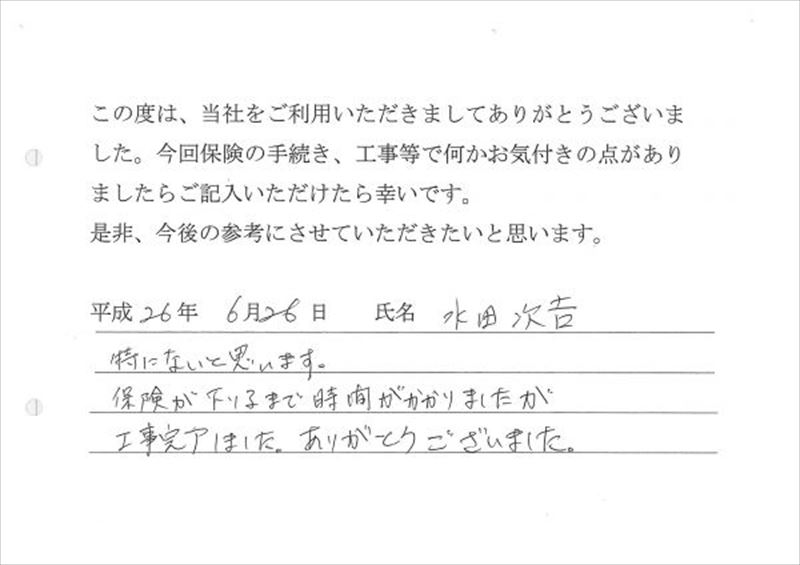 この度は、当社をご利用いただきましてありがとうございま
した。今回保険の手続き、工事等で何かお気付きの点があり
ましたらご記入いただけたら幸いです。
是非、今後の参考にさせていただきたいと思います。
平成26年 6月26日 氏名 水田次吉
特にないと思います。
保険が下りるまで時間がかかりましたが
工事完了しました。ありがとうございました。